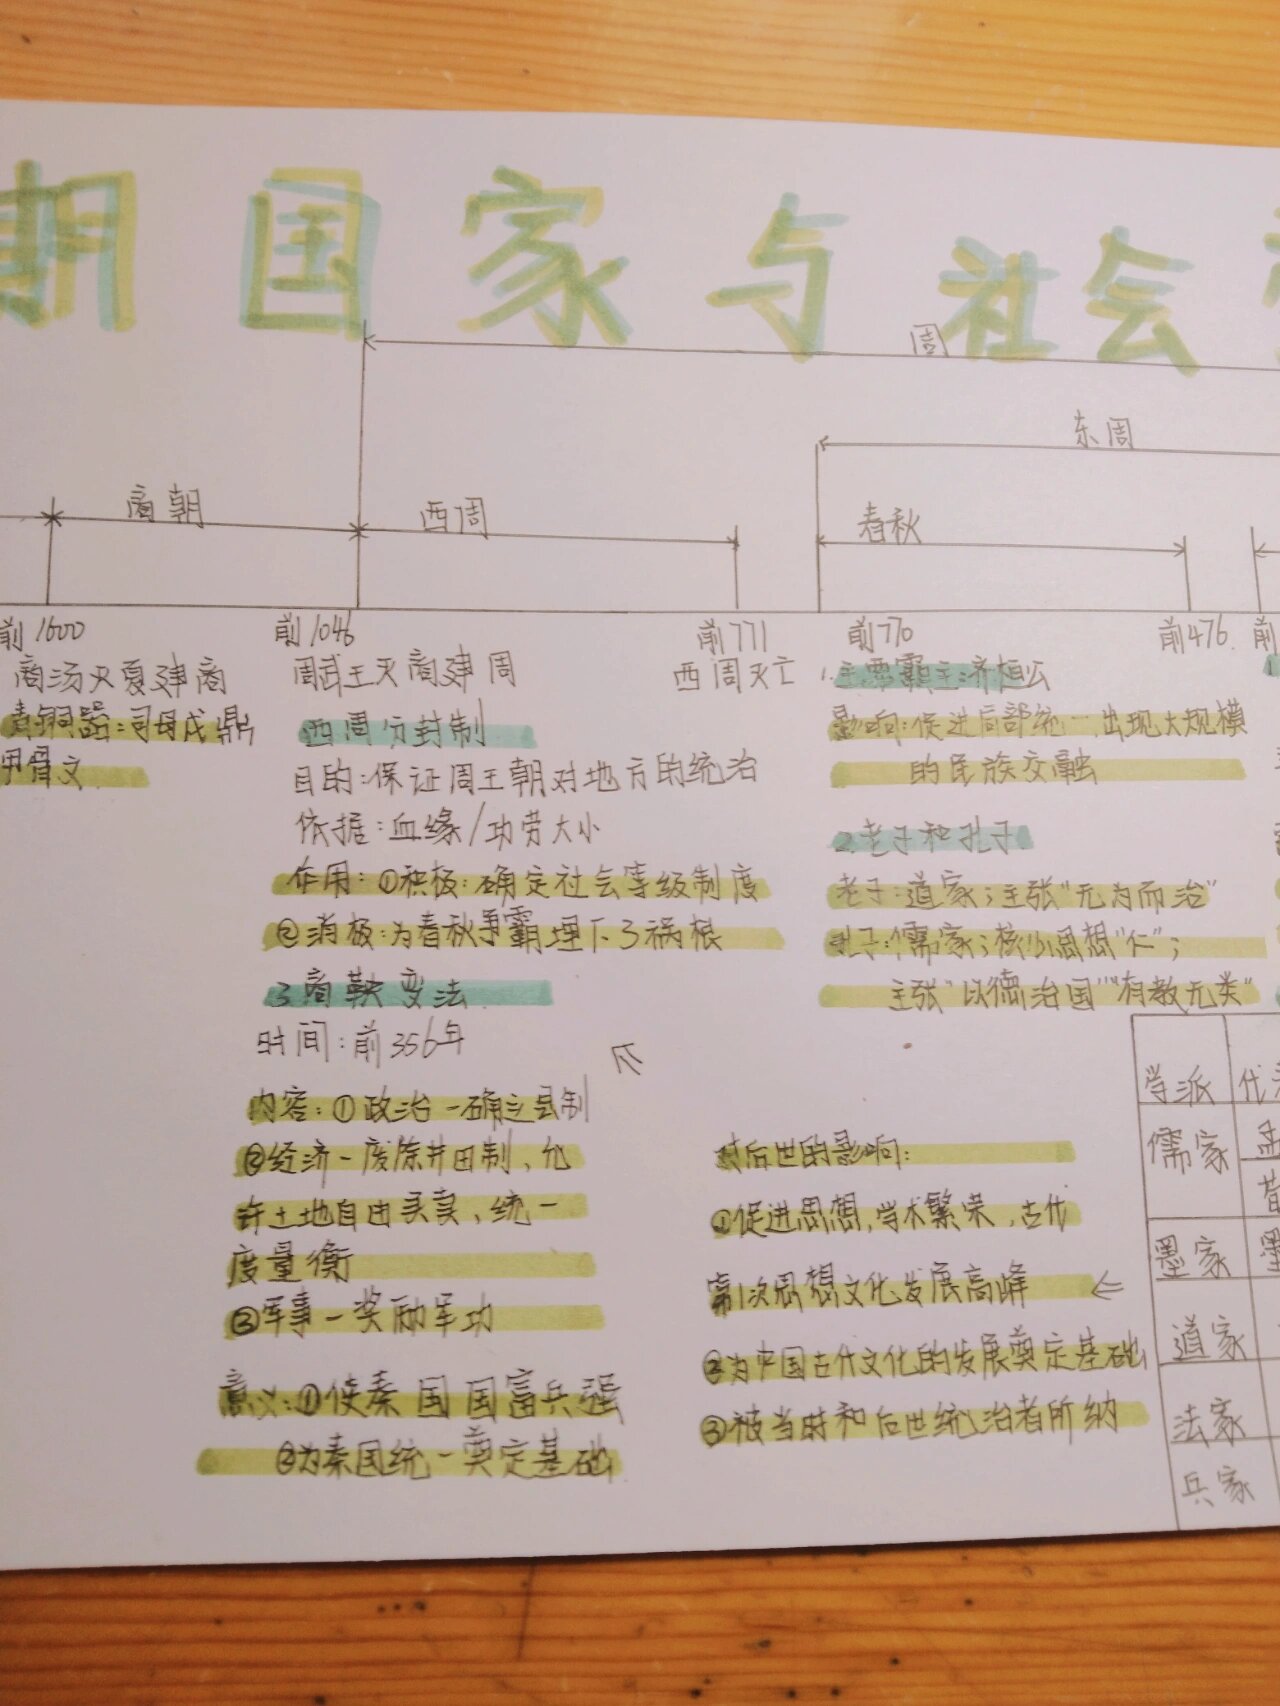 期国家与社会
周
东周
商朝
西周
春秋
前1600
前1046
前771
前770
前476
前
商汤灭夏建商
青铜器:司母戊鼎
甲骨文
周武王灭商建周
西周分封制
目的:保证周王朝对地方的统治
依据:血缘/功劳大小
作用:①积极:确定社会等级制度
②消极:为春秋争霸埋下了祸根
3.商鞅变法
时间:前356年
内容:①政治-确立县制
②经济-废除井田制、允
许土地自由买卖、统一
度量衡
③军事-奖励军功
意义:①使秦国国富兵强
②为秦国统一奠定基础
西周灭亡
1.主要霸主:齐桓公
影响:促进局部统一,出现大规模
的民族交融
2.老子和孔子
老子:道家;主张"无为而治"
孔子:儒家;核心思想"仁";
主张"以德治国""有教无类"
对后世的影响:
①促进思想,学术繁荣,古代
第1次思想文化发展高峰
②为中国古代文化的发展奠定基础
③被当时和后世统治者所纳
学派
儒家
墨家
道家
法家
兵家